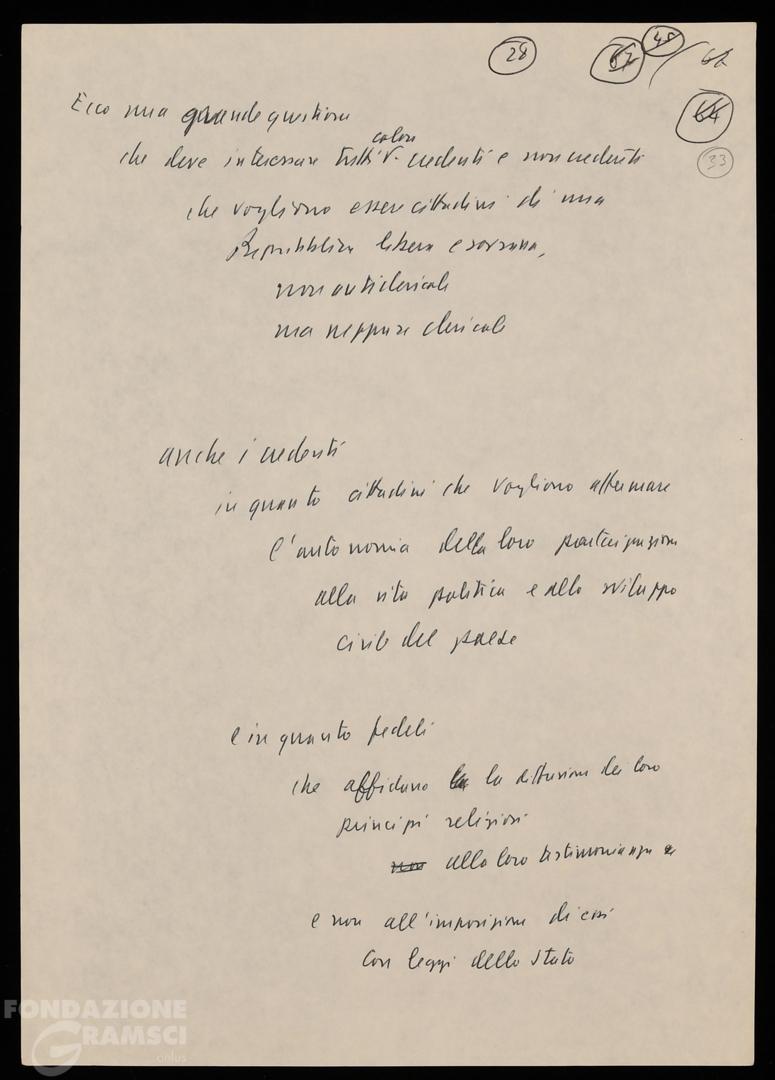 28 67 45 / 62
64
33
Ecco una grande questione
coloro
che deve interessare tutti credenti e non credenti
che vogliono essere cittadini di una
Repubblica libera e sovrana,
non anticlericale
ma neppure clericale
anche i credenti
in quanto cittadini che vogliono affermare
l'autonomia della loro partecipazione
alla vita politica e allo sviluppo
civile del paese
e in quanto fedeli
che affidano la diffusione dei loro
principi religiosi
non alla loro testimonianza
e non all'imposizione di essi
con leggi dello Stato
FONDAZIONE
GRAMSCI
onlus